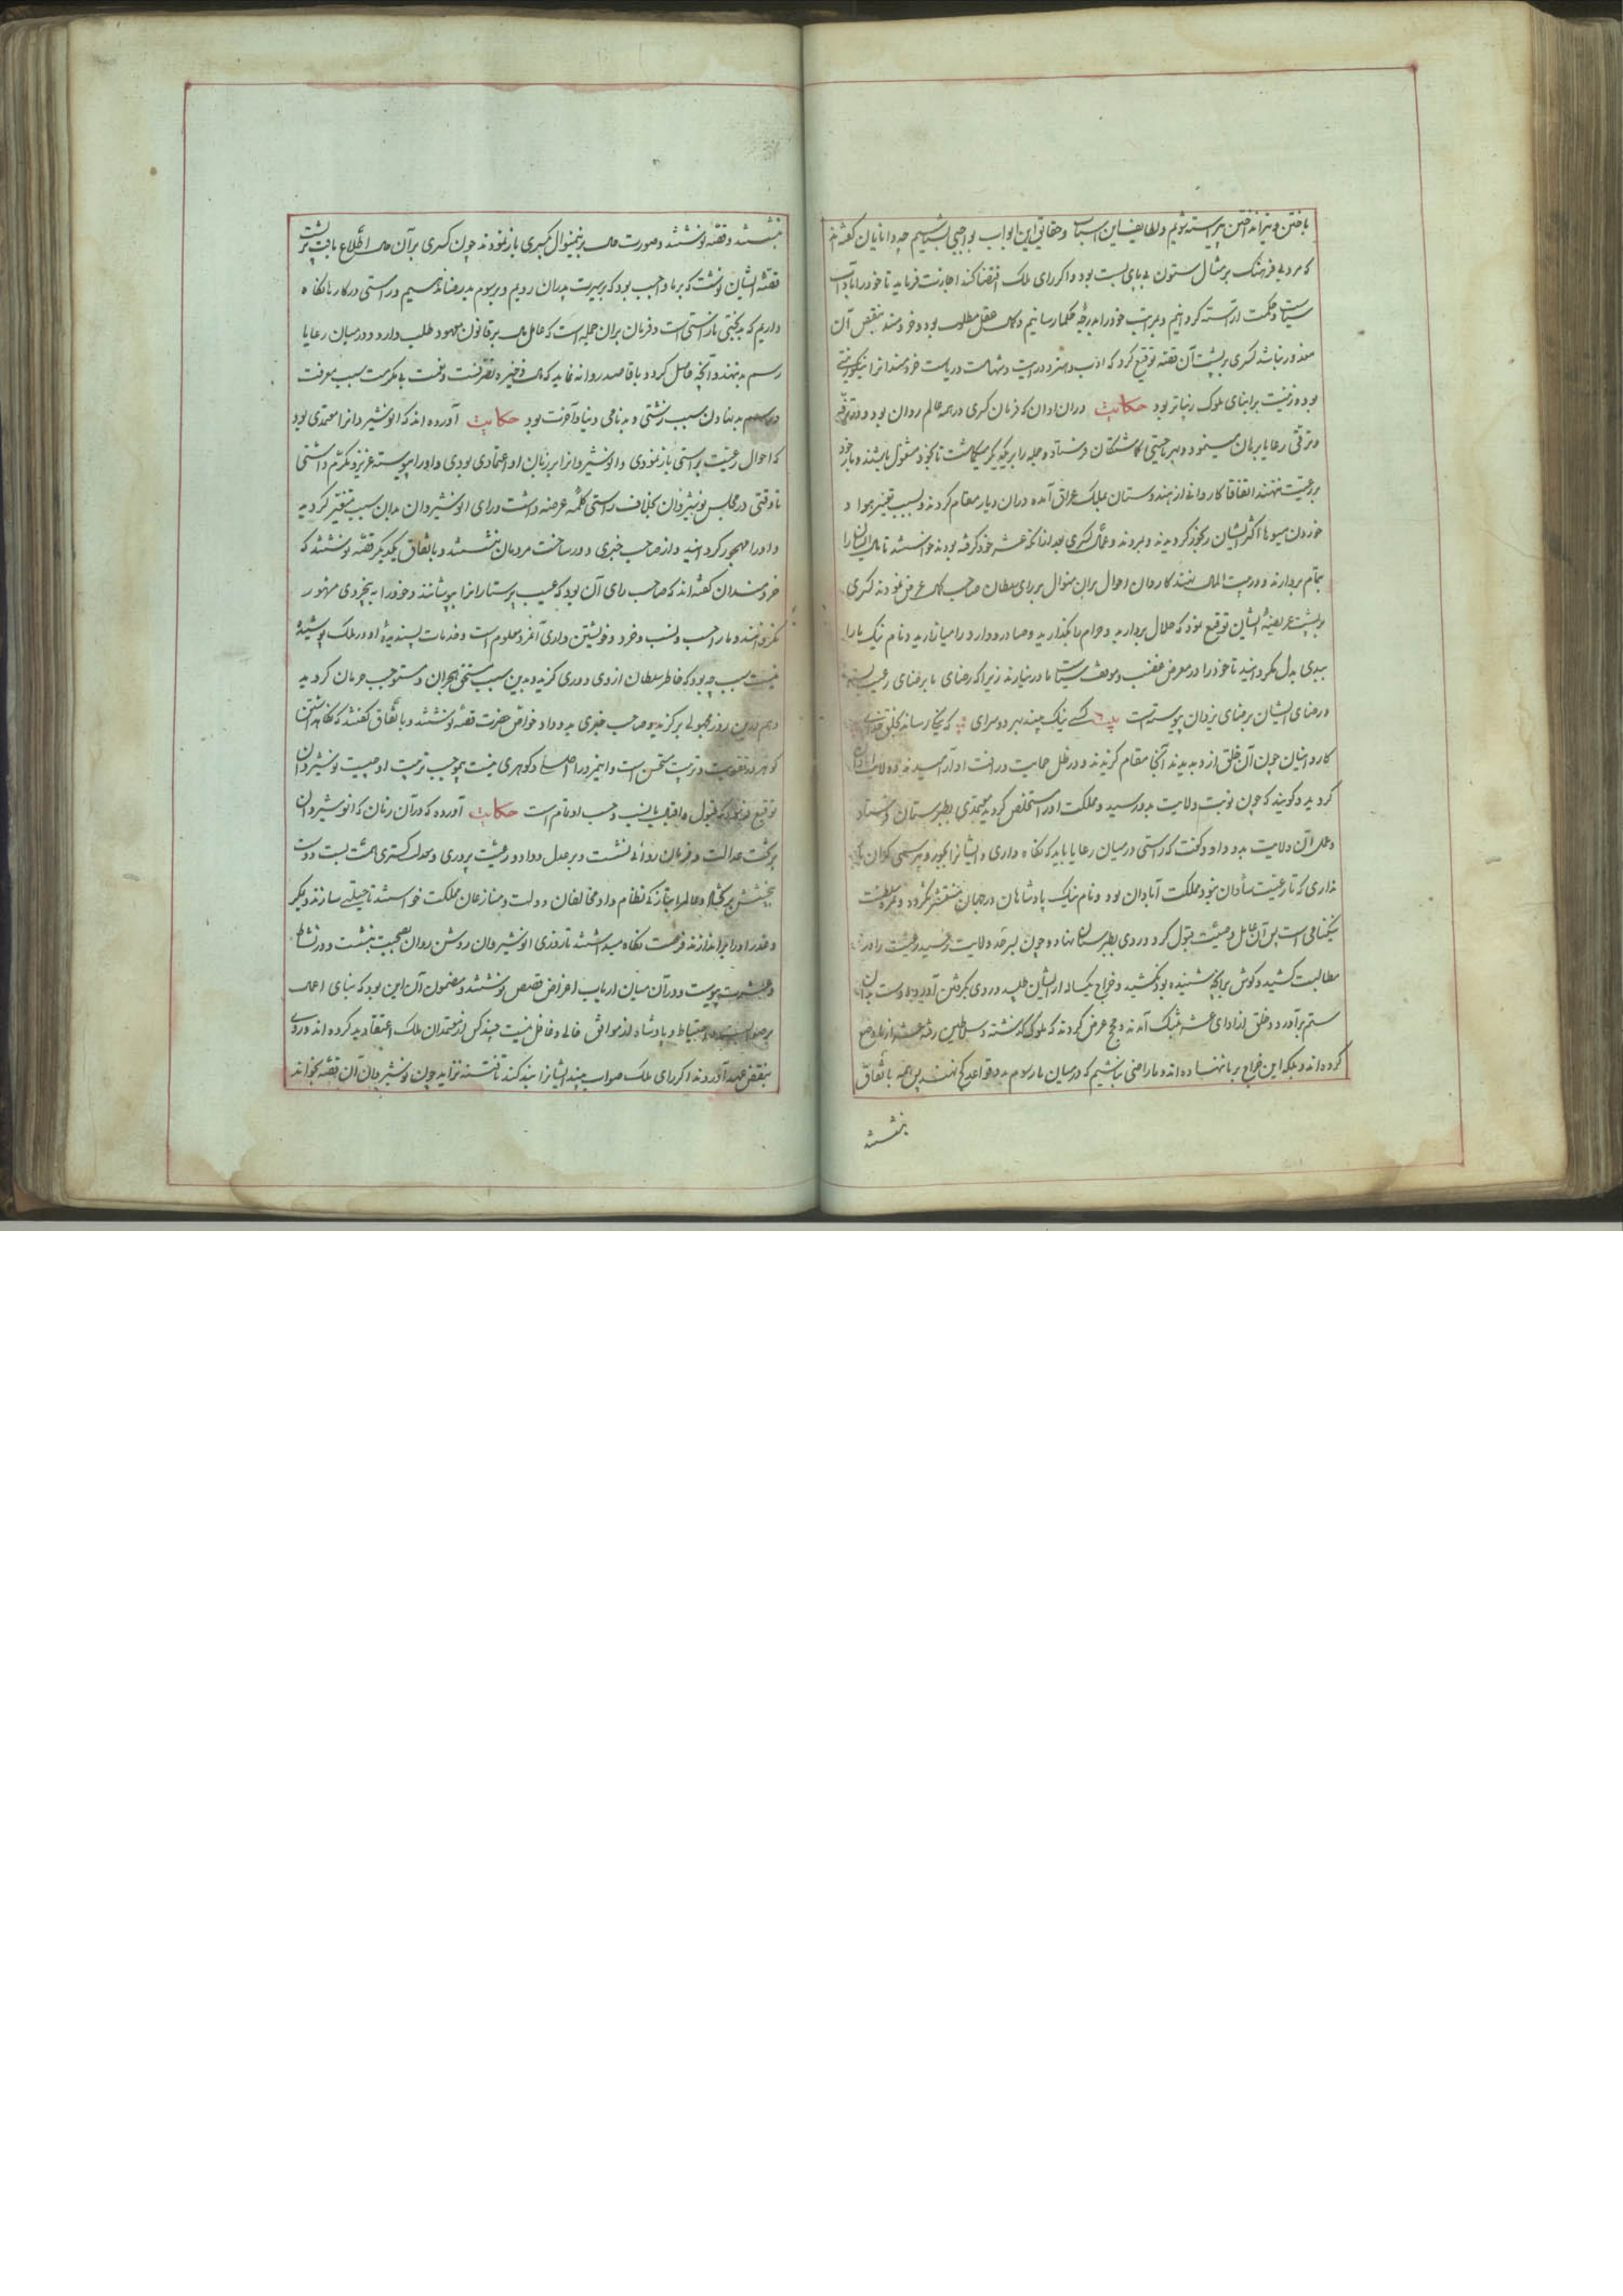 باختن و تیر انداختن پیراسته شویم و لطایف این اسباب و حقایق این ابواب بواجبی بشناسیم چه دانایان گفته‌اند
که مرد بی فرهنگ بر مثال ستون بی پای بست بود و اگر رای ملک اقتضا کند اجازت فرماید تا خود را باداب
سیاست و حکمت اراسته کردانیم و بمراتب خود را بدرجه حکما رسانیم و کمال عقل مطلوب بود و خردمند بنقص آن
معذور نباشد کسری بر پشت آن قصه توقیع کرد که ادب و هنر و درایت و شهامت و ریاست خردمندانرا نیکو
بود و زینت بر ابنای ملوک زیباتر بود حکایت دران اوان که فرمان کسری در همه عالم روان بود و در
و ترقی رعایا برهان مینمود و بهر ناحیتی کماشتکان فرستاد و جمله را بر یکدیکر میکماشت تا بخود مشغول باشند و بار خود
بر رعیت ننهند اتفاقا کاروانی از هندوستان بملک عراق آمده دران دیار مقام کردند و بسبب تغییر هوا و
خوردن میوها اکثر ایشان رنجور کردیدند و بمردند و عمال کسری بعد از انکه عشر خود کرفته بودند خواستند تا مال ایشانرا
بتمام بردارند و در بیت المال نهند کاروان احوال بران منوال بر رای سلطان صاحب کمال عرض نمودند کسری
بر پشت عریضهٔ ایشان توقیع نمود که حلال بردارید و حرام را بکذارید و صادر و وارد را میازارید و نام نیک ما را
ببدی بدل مکردانید تا خود را در معرض غضب و موقف سیاست ما در نیارید زیرا که رضای ما برضای رعیت
و رضای ایشان برضای یزدان پیوسته است بیت کسی نیک بیند بهر دو سرای که نیکی رساند بخلق خدای
کاروانیان چون آن خلق ازو بدیدند آنجا مقام کزیدند و در ظل حمایت و رافت او آرامیدند و ولایت
کردید و کویند که چون نوبت ولایت بدو رسید و مملکت او را مستخلص کردید معتمدی بطبرستان فرستاد
و عمل آن ولایت بدو داد و کفت که راستی در میان رعایا باید که نکاه داری و ایشانرا بجور و بهر سمی
نداری که تا رعیت شادان نبود مملکت آبادان نبود و نام نیک پادشاهان در جهان منتشر نکردد و ثمره سلطنت
نیکنامی است پس آن عامل وصیت قبول کرد و روی بطبرستان نهاد و چون بسرحد ولایت رسید رعیت را در
مطالبت کشید و کوش بر آنچه شنیده بود نکشید و خراج یکساله از ایشان طلبید و روی بکرفتن آورد و دست بدان
ستم برآورد و خلق از ادای عشر بتنک آمدند و حجج عرض کردند که ملوک گذشته و سلاطین رفته عشر از ما وضع
کرده‌اند و بلکه این خراج بر ما ننهاده‌اند و ما راضی نباشیم که در میان ما رسوم بد و قواعد کج نهند پس همه باتفاق
بنشستند
بنشستند و قصه نوشتند و صورت حال برینمنوال بکسری بازنمودند چون کسری برآن حال اطلاع یافت بر پشت
قصهٔ ایشان نوشت که بر ما واجب بود که بر سیرت پدران رویم و برسوم بد رضا ندهیم و راستی در کارها نکاه
داریم که بدبختی ناراستی است و فرمان بران جمله است که عامل مال بر قانون معهود طلب دارد و در میان رعایا
رسم بد ننهند و آنچه حاصل کردد با قاصد روانه نماید که مال ذخیره نصرتست و نعمت بی مکرمت سبب معرفت
و رسم بد نهادن سبب زشتی و بدنامی دنیا و آخرت بود حکایت آورده‌اند که انوشیروانرا معتمدی بود
که احوال رعیت براستی بازنمودی و انوشیروانرا بر زبان او اعتمادی بودی و او را پیوسته عزیز و مکرم داشتی
تا وقتی در مجلس نوشیروان بخلاف راستی کلمهٔ عرضه داشت و رای انوشیروان بدان سبب متغیر کردید
و او را مهجور کردانید و از صاحب خبری دور ساخت مردمان بنشستند و باتفاق یکدیکر قصه نوشتند که
خردمندان گفته‌اند که صاحب رای آن بود که عیب پرستارانرا بپوشانند و خود را به بیخردی مشهور
نکردانند و ما را حسب و نسب و خرد و خویشتن داری آنمرد معلوم است و خدمات پسندیدهٔ او در ملک پوشیده
نیست سبب چه بود که خاطر سلطان از وی دوری کزید و بدین سبب مستحق هجران و مستوجب حرمان کردید
و هم درین روز مجهولی برکزید و صاحب خبری بدو داد و خواص حضرت قصه نوشتند و باتفاق گفتند که نکاهداشتن
کوهر و تقویت و تربیت مستحسن است و اینمرد را اصلی و کوهری نیست بموجب تربیت او چیست نوشیروان
توقیع فرمود که قبول و اقبال ما نسب و حسب او تمام است حکایت آورده که در آن زمان که انوشیروان
بر تخت عدالت و فرمان روائی نشست و بر عدل و داد و رعیت پروری و معدلت کستری همت بست و دست
بخشش برکشاد و عالم را بتازکی نظام داد مخالفان دولت و منازعان مملکت خواستند تا حیلتی سازند و مکر
و غدر او را براندازند فرصت نکاه میداشتند تا روزی انوشیروان روشن روان بصحبت بنشست و در نشاط
و عشرت پیوست و در آن میان ارباب اغراض قصص نوشتند و مضمون آن این بود که بنای اعمال
بر صواب و احتیاط و پادشاه از موافق خالی و غافل نیست چند کس از معتمدان ملک اعتقاد بد کرده‌اند و روی
بنقض عهد آوردند اگر رای ملک صواب بیند ایشانرا بند کند تا فتنه نزاید چون نوشیروان آن قصه بخواند